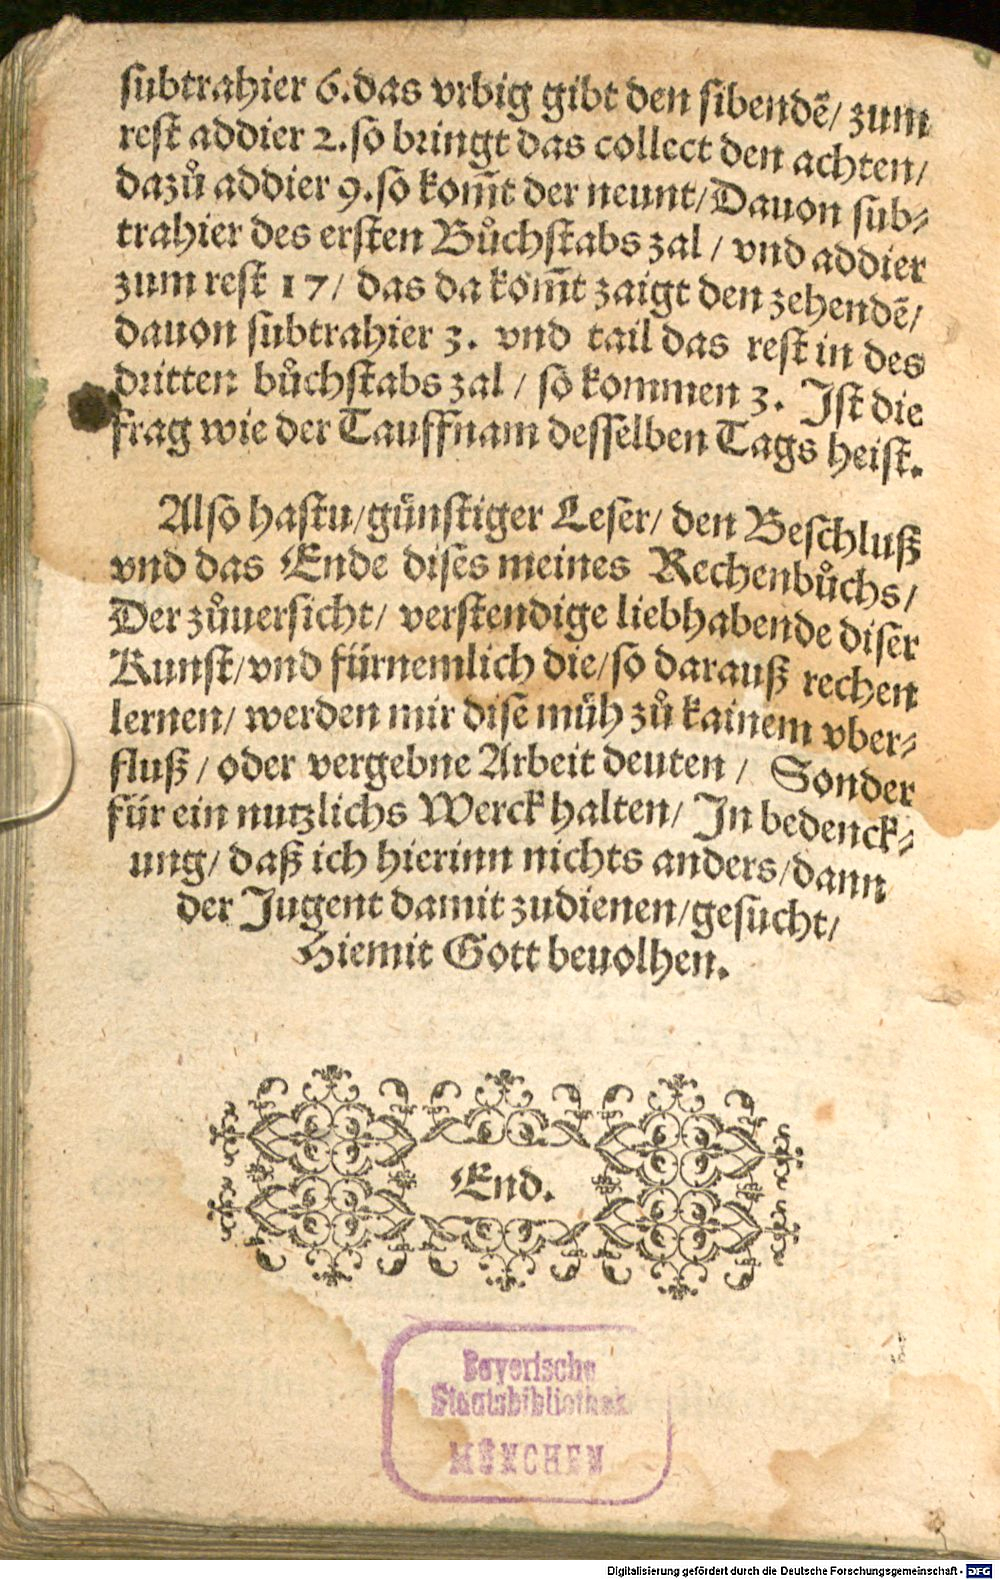 subtrahier 6.das vrbig gibt den sibendē/ zum
rest addier 2.so bringt das collect den achten/
dazů addier 9.so kom̄t der neunt/Dauon sub-
trahier des ersten Bůchstabs zal / vnd addier
zum rest 17/ das da kom̄t zaigt den zehendē/
dauon subtrahier 3. vnd tail das rest in des
dritten bůchstabs zal / so kommen 3. Jst die
frag wie der Tauffnam desselben Tags heist.
Also hastu/günstiger Leser/ den Beschluß
vnd das Ende dises meines Rechenbůchs/
Der zůuersicht/ verstendige liebhabende diser
Kunst/vnd fürnemlich die/so darauß rechen
lernen/ werden mir dise müh zů kainem vber-
fluß / oder vergebne Arbeit deuten / Sonder
für ein nutzlichs Werck halten/ Jn bedenck-
ung/ daß ich hierinn nichts anders/dann
der Jugent damit zudienen/gesucht/
Hiemit Gott beuolhen.
End.
Bayerische
Staatsbibliothek
MÜNCHEN
Digitalisierung gefördert durch die Deutsche Forschungsgemeinschaft - DFG